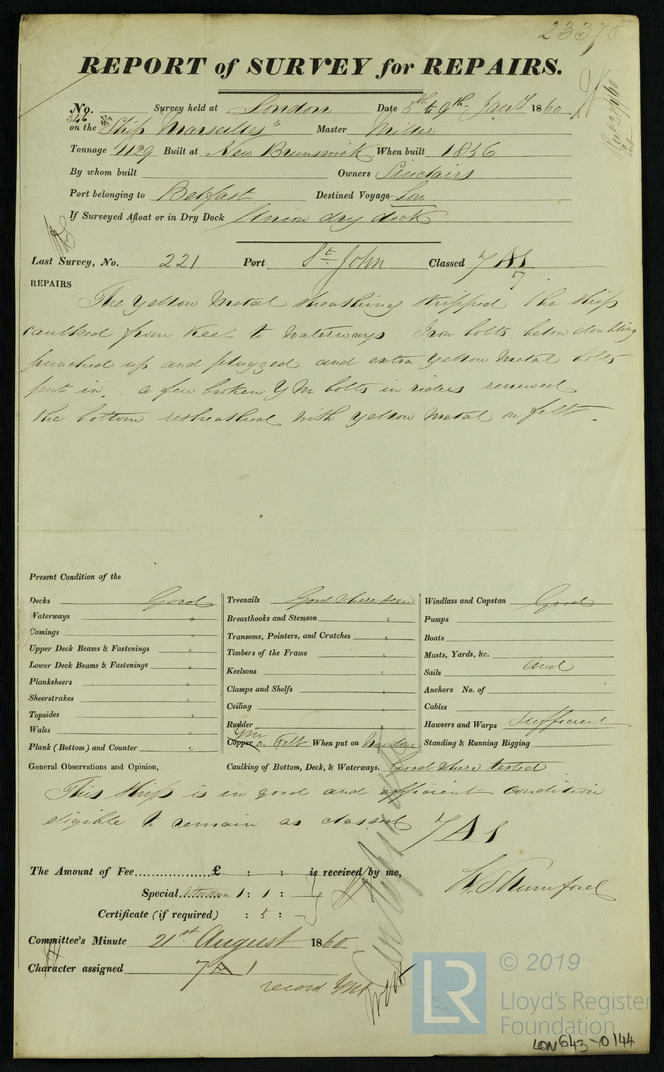 23378
REPORT of SURVEY for REPAIRS.
No. 346 Survey held at London Date 5th to 9th Jany 1860
on the Ship "Marseilles" Master Miller
Tonnage 1129 Built at New Brunswick When built 1856
By whom built Owners Sinclairs
Port belonging to Belfast Destined Voyage Lon
If Surveyed Afloat or in Dry Dock Union dry dock
Last Survey, No. 221 Port St. John Classed 7 A1
7
REPAIRS
The yellow Metal sheathing stripped The Ship
caulked from Keel to Waterways Iron bolts below doubling
punched up and plugged and extra yellow Metal bolts
put in. a few broken YM bolts in riders renewed
the bottom resheathed with yellow Metal on felt.
Present Condition of the
Decks Good
Waterways "
Comings "
Upper Deck Beams & Fastenings "
Lower Deck Beams & Fastenings "
Planksheers "
Sheerstrakes "
Topsides "
Wales "
Plank (Bottom) and Counter "
Treenails Good where seen
Breasthooks and Stemson "
Transoms, Pointers, and Crutches "
Timbers of the Frame "
Keelsons "
Clamps and Shelfs "
Ceiling "
Rudder "
YM
Copper on Felt When put on Now done
Windlass and Capstan Good
Pumps
Boats
Masts, Yards, &c.
Sails and
Anchors No. of
Cables
Hawsers and Warps Sufficient
Standing & Running Rigging
General Observations and Opinion, Caulking of Bottom, Deck, & Waterways. Good where tested
This Ship is in good and efficient condition
eligible to remain as classed 7 A 1
The Amount of Fee £ : : is received by me,
Special Attendance 1 : 1 :
Certificate (if required) : 5 :
Committee's Minute 21st August 1860
Character assigned 7 A 1
record YM
© 2019
LR
Lloyd's Register
Foundation
LON643-0144